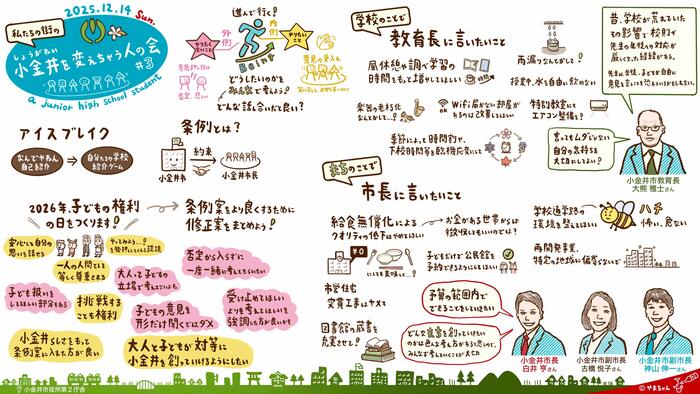 2025.12.14 Sun.
私たちの街の
しょうがねい
小金井を変えちゃう人の会
#3
a junior high school student
アイスブレイク
なんでやねん
自己紹介
自分たちの学校
紹介ゲーム
進んで行く!
外側
内側
やりたく
ないこと
やりたい
こと
Being
どうしたいのかを
みんなで考えよう!
どんな話し合いだと良い?
条例とは?
約束
小金井市
小金井市民
2026年、子どもの権利
の日をつくります!
条例案をより良くするために
修正案をまとめよう!
安心して自分の
思いを話せる
一人の人間として
等しく尊重される
大人って子どもの
立場で考えないよね
否定から入らずに
一度一緒に考えてもらいたい
子ども扱いを
してほしい部分もある
挑戦する
ことも権利
子どもの意見を
形だけ聞くではダメ
受け止めてほしい
よりも考えてほしいを
強調した方が良いかも
小金井らしさをもって
条例案に入れた方が良い
大人と子どもが対等に
小金井を創っていけるようにしたい
小金井市役所第2庁舎
学校のことで
教育長に言いたいこと
風休憩や調べ学習の
時間をもっと増やしてほしい
雨漏りなんとかして!
授業中、水を自由に飲めない
楽器の老朽化
なんとかして…!
WiFi届かない部屋が
あるのは改善してほしい
特別教室にも
エアコン整備を!
季節によって時間割や
下校時間等を臨機応変にして
昔、学校が荒れていた
その影響で校則が
先生の生徒への対応が
厳しくなった経緯がある。
言ってもムダじゃない
自分の気持ちを
大切にしてよい!
小金井市教育長
大熊 雅士さん
まちのことで
市長に言いたいこと
給食無償化による
クオリティの低下はやめてほしい
¥0
お金がある世帯からは
徴収してもいいのでは?
学校通学路の
環境を整えてほしい
ハチ
怖い、危ない
子どもだけで公民館を
予約できるようにしてほしい
再開発事業、
特定の地域に偏らないで
市営住宅
突貫工事はヤメて
図書館の蔵書を
充実させて!
予算の範囲内で
できることをしていきたい
小金井市長
白井 亨さん
小金井市副市長
古橋 悦子さん
小金井市副市長
神山 伸一さん
©やまちゃん